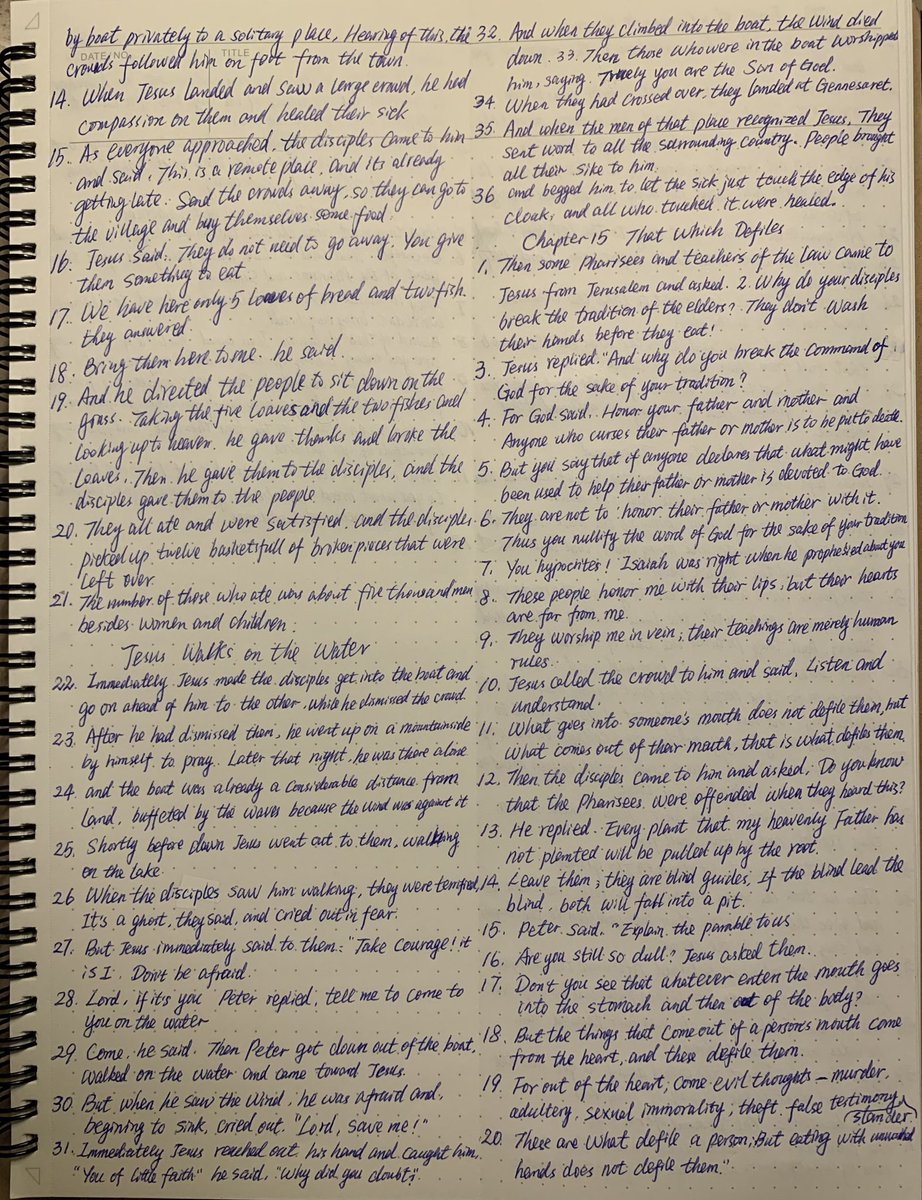 DATE/NO.
TITLE
by boat privately to a solitary place, Hearing of this, the
crowds followed him on foot from the town.
14. When Jesus landed and saw a large crowd, he had
compassion on them and healed their sick
15. As everyone approached, the disciples came to him
and said. This is a remote place, and its already
getting late. Send the crowds away, so they can go to
the village and buy themselves some food.
16. Jesus said. They do not need to go away. You give
them something to eat
17. We have here only 5 loaves of bread and two fish
they answered.
18. Bring them here to me. he said.
19. And he directed the people to sit down on the
grass. Taking the five loaves and the two fishes and
looking up to heaven. he gave thanks and broke the
loaves. Then he gave them to the disciples, and the
disciples gave them to the people
20. They all ate and were satisfied, and the disciples
picked up twelve basketfull of broken pieces that were
left over.
21. The number of those who ate was about five thousand men
besides women and children.
Jesus Walks on the Water
22. Immediately Jesus made the disciples get into the boat and
go on ahead of him to the other, while he dismissed the crowd.
23. After he had dismissed them, he went up on a mountainside
by himself to pray. Later that night, he was there alone
24. and the boat was already a considerable distance from
land, buffeted by the waves because the wind was against it
25. Shortly before dawn Jesus went out to them, walking
on the lake.
26 When the disciples saw him walking, they were terrified,
It's a ghost, they said, and cried out in fear.
27. But Jesus immediately said to them: "Take courage! it
is I. Don't be afraid.
28. Lord, if it's you Peter replied, tell me to come to
you on the water
29. Come, he said. Then Peter got down out of the boat,
walked on the water and came toward Jesus.
30. But when he saw the wind, he was afraid and,
beginning to sink, cried out. "Lord, save me!"
31. Immediately Jesus reached out his hand and caught him.
"You of little faith" he said, "Why did you doubt?
32. And when they climbed into the boat, the wind died
down. 33. Then those who were in the boat worshipped
him, saying. Truely you are the Son of God.
34. When they had crossed over, they landed at Gennesaret.
35. And when the men of that place recognized Jesus, They
sent word to all the surrounding country. People brought
all their sike to him
36 and begged him to let the sick just touch the edge of his
cloak, and all who touched it were healed.
Chapter 15 That Which Defiles
1. Then some Pharisees and teachers of the law came to
Jesus from Jerusalem and asked. 2. Why do your disciples
break the tradition of the elders? They don't wash
their hands before they eat!
3. Jesus replied. "And why do you break the command of
God for the sake of your tradition?
4. For God said. Honor your father and mother and
Anyone who curses their father or mother is to be put to death.
5. But you say that if anyone declares that what might have
been used to help their father or mother is devoted to God.
6. They are not to honor their father or mother with it.
Thus you nullify the word of God for the sake of your tradition
7. You hypocrites! Isaiah was right when he prophesied about you
8. These people honor me with their lips, but their hearts
are far from me.
9. They worship me in vein; their teachings are merely human
rules.
10. Jesus called the crowd to him and said, Listen and
understand.
11. What goes into someone's mouth does not defile them, but
what comes out of their mouth, that is what defiles them.
12. Then the disciples came to him and asked, Do you know
that the Pharisees were offended when they heard this?
13. He replied. Every plant that my heavenly Father has
not planted will be pulled up by the root.
14. Leave them; they are blind guides. If the blind lead the
blind, both will fall into a pit.
15. Peter said. "Explain the parable to us
16. Are you still so dull? Jesus asked them.
17. Don't you see that whatever enters the mouth goes
into the stomach and then out of the body?
18. But the things that come out of a person's mouth come
from the heart, and these defile them.
19. For out of the heart, come evil thoughts — murder,
adultery, sexual immorality, theft, false testimony
slander
20. These are what defile a person; But eating with unwashed
hands does not defile them."